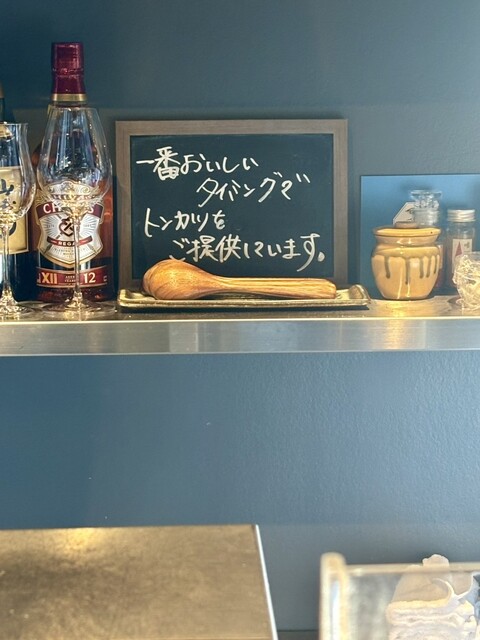 一番おいしい
タイミングで
トンカツを
ご提供しています。
CHIVAS
REGAL
XII 12
山